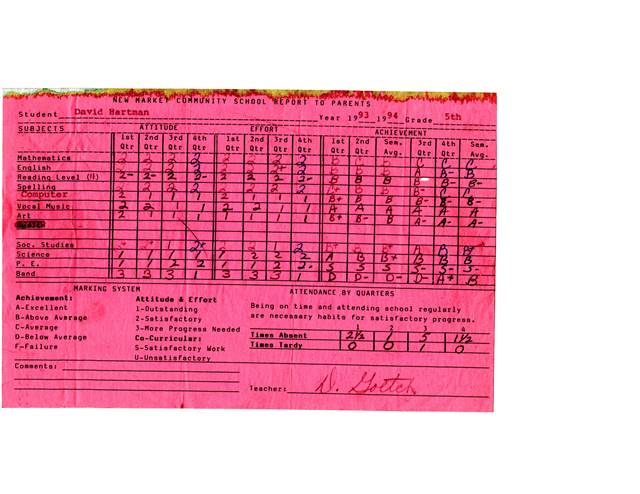 NEW MARKET COMMUNITY SCHOOL REPORT TO PARENTS
Student David Hartman Year 1993 1994 Grade 5th
SUBJECTS ATTITUDE EFFORT ACHIEVEMENT
1st Qtr 2nd Qtr 3rd Qtr 4th Qtr 1st Qtr 2nd Qtr 3rd Qtr 4th Qtr 1st Qtr 2nd Qtr Sem. Avg. 3rd Qtr 4th Qtr Sem. Avg.
Mathematics 2 2 2 2 2 2 2 2 B C B C C C
English
Reading Level (4) B B B B- B B-
Spelling 2 2 2 2 2 2 2 2
Computer 2 1 1 1 2 1 1 1 B+ B B B- B- B-
Vocal Music 2 2 1 1 2 2 1 1 A A A A A A
Art 2 1 1 1 1 1 1 1 B+ B- B A A- A-
Soc. Studies
Science 1 1 1 1 1 2 2 2 A B B+ B B B
P. E. 1 1 2 2 1 1 2 2- S S S S- S- S-
Band 3 3 3 1 3 3 3 1 D D- D- D- A+ B
MARKING SYSTEM
Achievement: Attitude & Effort
A-Excellent 1-Outstanding
B-Above Average 2-Satisfactory
C-Average 3-More Progress Needed
D-Below Average Co-Curricular:
F-Failure S-Satisfactory Work
U-Unsatisfactory
Comments:
ATTENDANCE BY QUARTERS
Being on time and attending school regularly
are necessary habits for satisfactory progress.
1 2 3 4
Times Absent 2½ 1 5 1½
Times Tardy 0 0 1 0
Teacher: D. Goetch